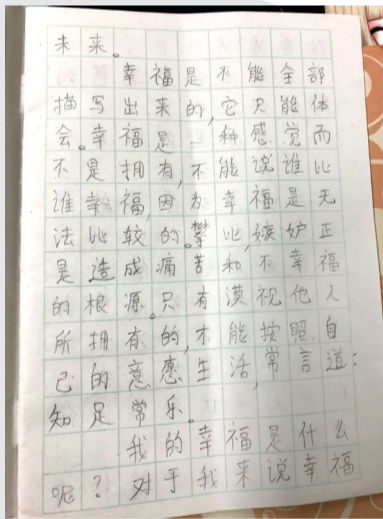 未来。
幸福是不能全部
描写出来的,它只能体
会。幸福是一种感觉而
不是拥有,不能说谁比
谁幸福,因为幸福是无
法比较的。攀比,嫉妒正
是造成痛苦和不幸福
的根源。只有漠视他人
所拥有的,才能按照自
己的意愿生活,常言道:
知足常乐。
我的幸福是什么
呢?对于我来说幸福